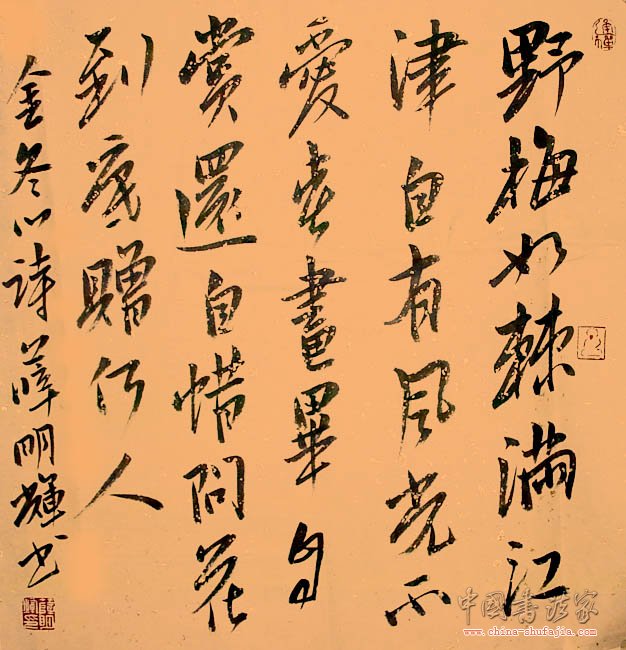 野梅如棘滿江
津自有風光不
愛春畫畢自
賞還自惜問花
到底贈何人
金冬心詩薛明輝書
中國書法家
www.china-shufajia.com